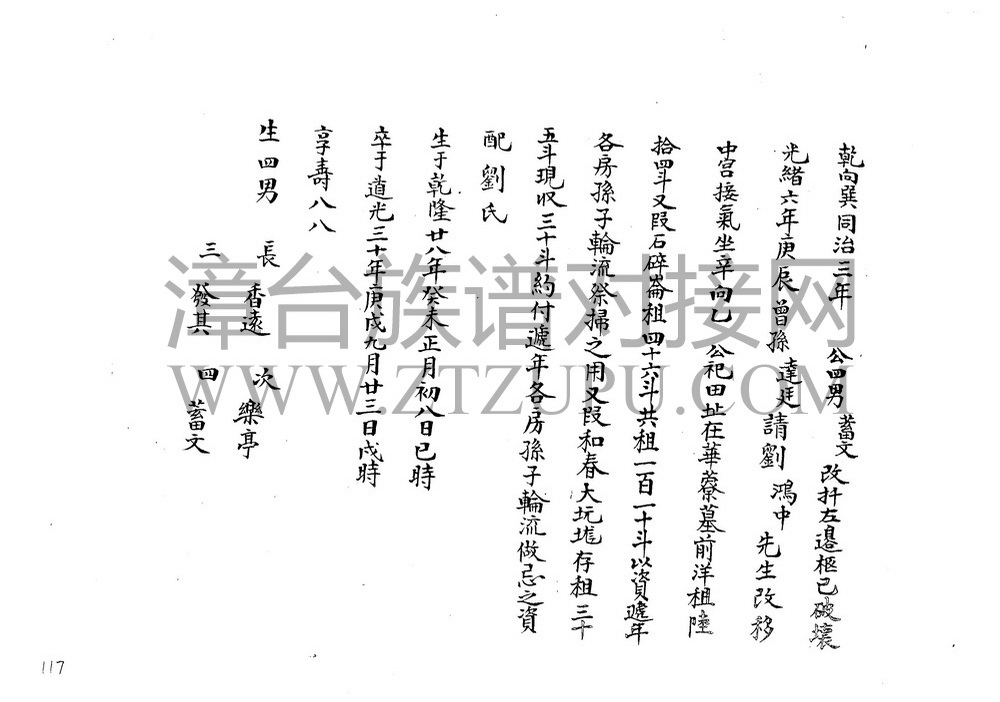 乾向巽同治三年 公四男 蓄文 改扦左邊柩已破壞
光緒六年庚辰曾孫達廷請劉鴻中先生改移
中宮接氣坐辛向乙 公祀田址在華藔墓前洋租陸
拾四斗又段石碎崙租四十六斗共租一百一十斗以資遞年
各房孫子輪流祭掃之用又段和春大坑壠存租三十
五斗現收三十斗約付遞年各房孫子輪流做忌之資
配劉氏
生于乾隆廿八年癸未正月初八日巳時
卒于道光三十年庚戌九月廿三日戌時
享壽八八
生四男 長 香遠 次 樂亭
三 發其 四 蓄文
漳台族谱对接网
WWW.ZTZUPU.COM
117